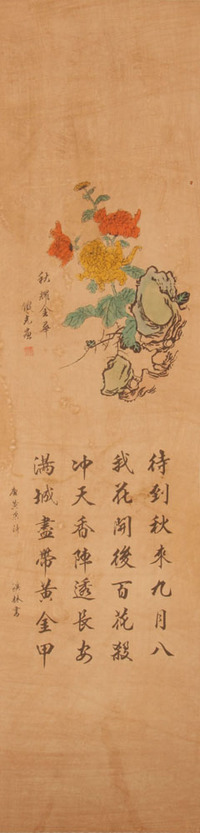 秋耀金華
待到秋來九月八
我花開後百花殺
冲天香陣透長安
滿城盡帶黃金甲
唐黃巢詩